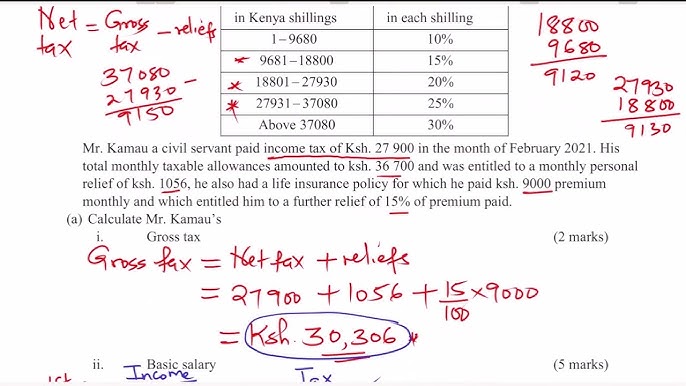 Net = Gross - reliefs
tax tax
37080 -
27930
9150
in Kenya shillings in each shilling
1–9680 10%
9681–18800 15%
18801–27930 20%
27931–37080 25%
Above 37080 30%
18800
9680
9120
27930
18800
9130
Mr. Kamau a civil servant paid income tax of Ksh. 27 900 in the month of February 2021. His
total monthly taxable allowances amounted to ksh. 36 700 and was entitled to a monthly personal
relief of ksh. 1056, he also had a life insurance policy for which he paid ksh. 9000 premium
monthly and which entitled him to a further relief of 15% of premium paid.
(a) Calculate Mr. Kamau’s
i. Gross tax (2 marks)
Gross tax = Net tax + reliefs
= 27900 + 1056 + 15/100 × 9000
= Ksh. 30,306
ii. Basic salary (5 marks)
Income Tax
1st